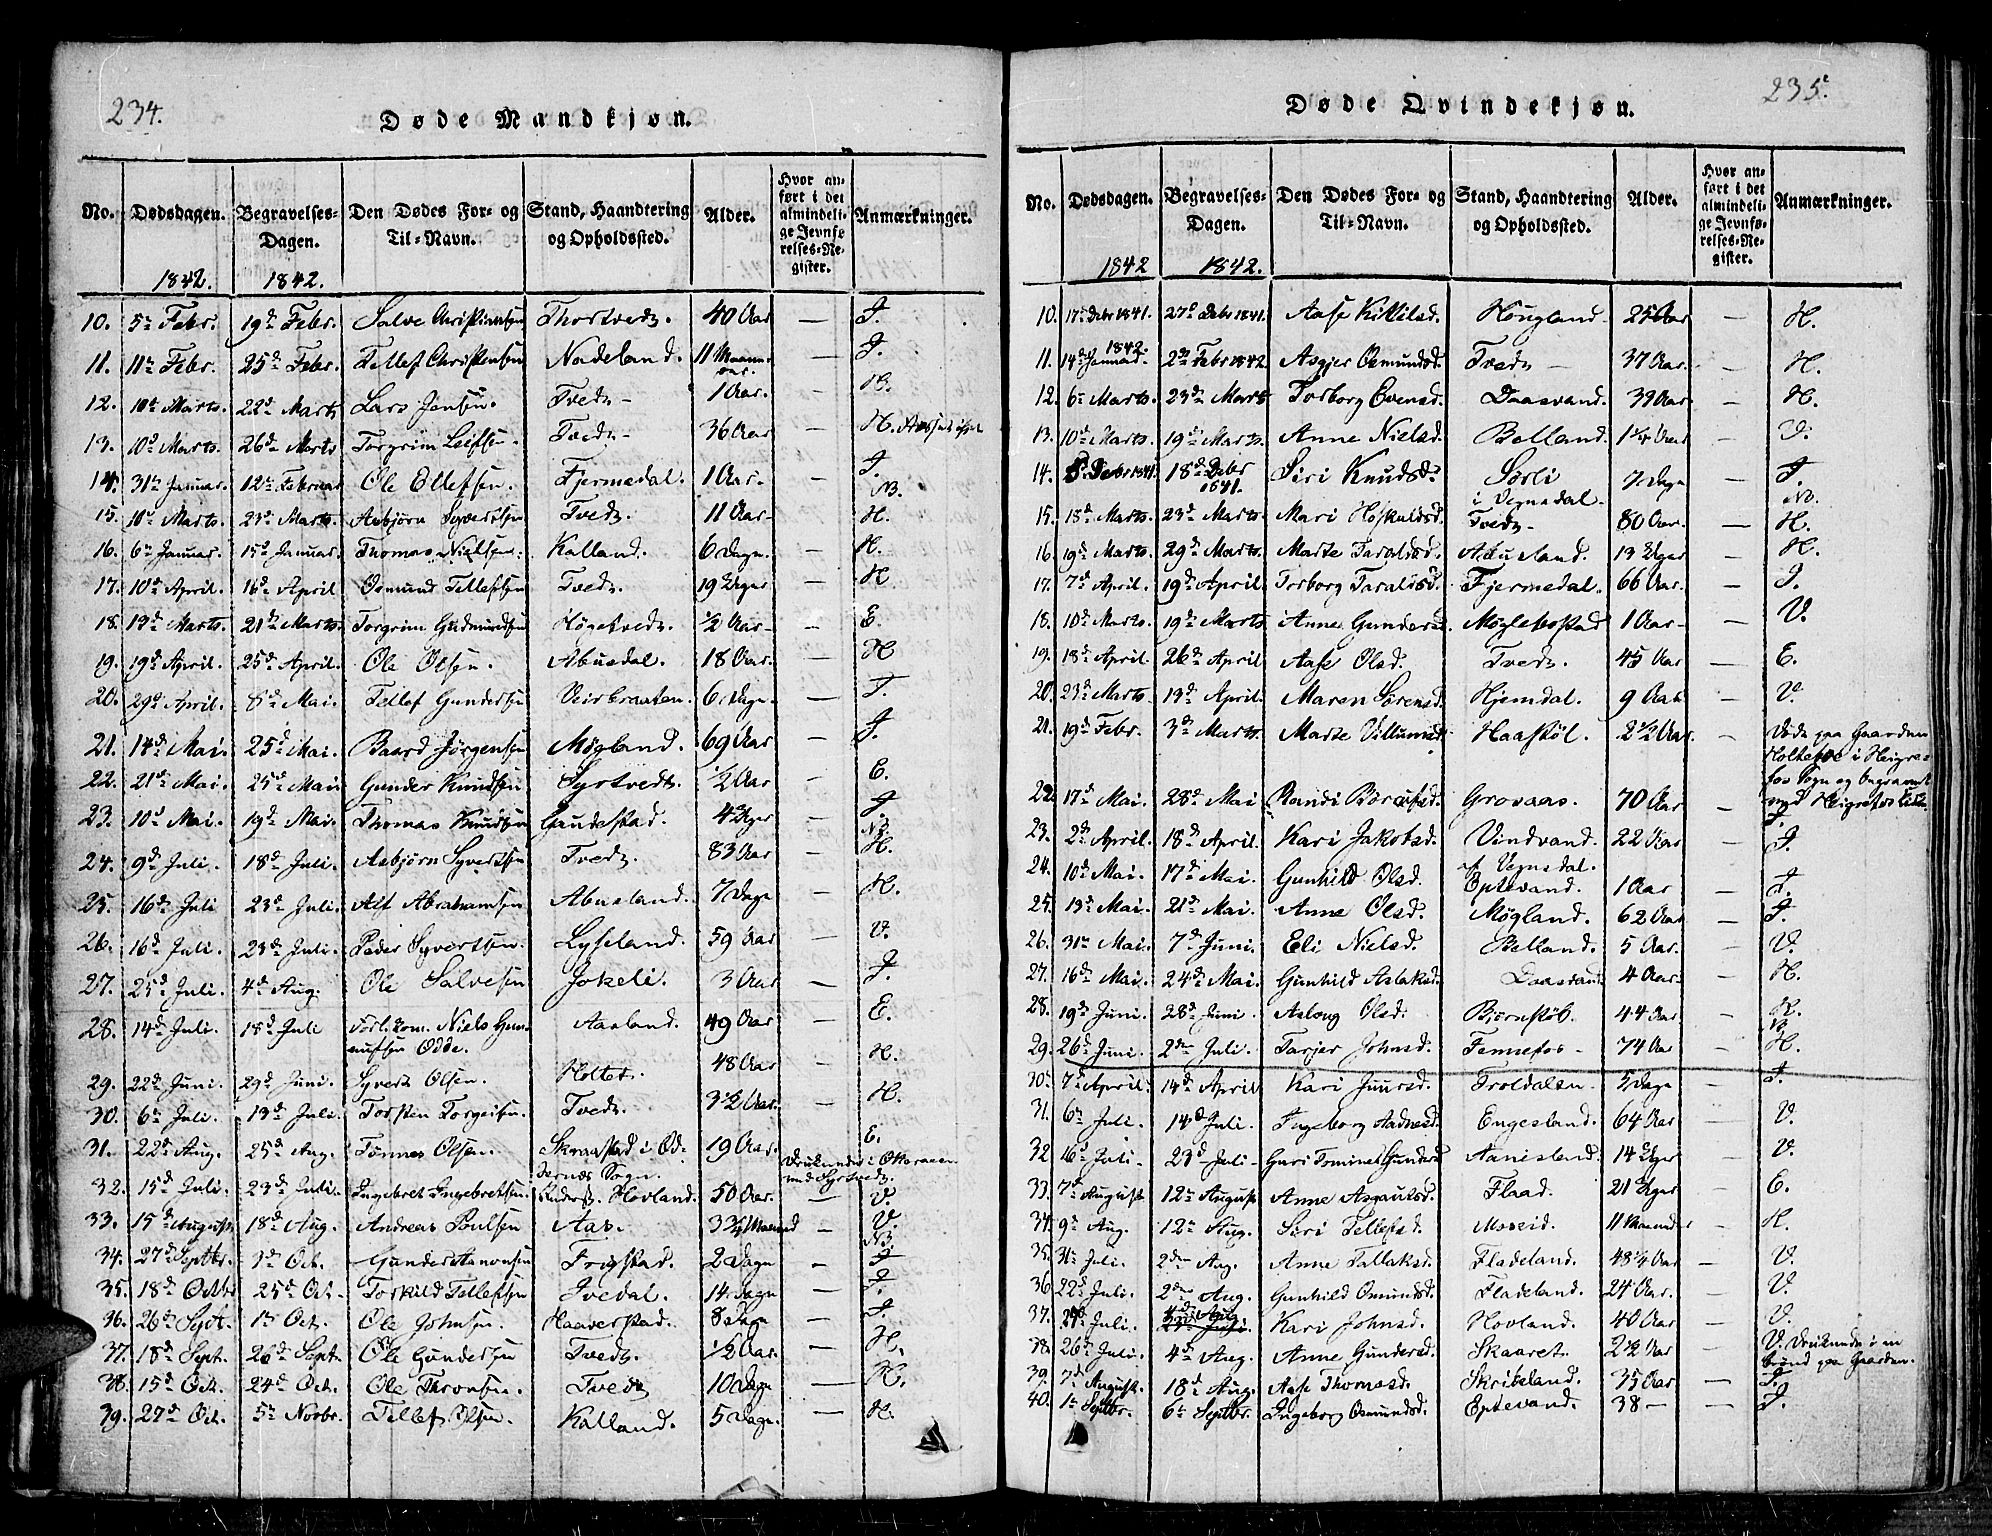 234.
Døde Mandkjøn.
No. Dødsdagen. Begravelses-Dagen. Den Dødes For- og Til-Navn. Stand, Haandtering og Opholdssted. Alder. Hvor anført i det almindelige Jevnførelses-Register. Anmærkninger.
1842. 1842.
10. 5te Febr. 19d Febr. Salve Christensen Thortvedt. 40 Aar — I.
11. 11te Febr. 25d Febr. Tellef Christensen Nadeland. 11 Maan. — I.
12. 10d Marts. 22d Marts Lars Jensen. Tvedt. 1 Aar. — B.
13. 10d Marts. 26d Marts Torgrim Leifsen. Tvedt. 36 Aar — H.
14. 31te Januar. 12te Februar Ole Ellefsen Fjermedal. 1 Aar. — I.
15. 10d Marts. 23d Marts. Asbjørn Syvertsen Tvedt. 11 Aar — NB. H.
16. 6te Januar. 15d Januar. Thomas Nielsen. Kalland. 6 Dage. — H.
17. 10d April. 16d April Osmund Tellefsen Tvedt. 19 Uger — H
18. 13d Marts. 21d Marts. Torgrim Gudmundsen Høgetvedt. 1/2 Aar — E.
19. 19d April. 25d April. Ole Olsen. Abusdal. 18 Aar. — H
20. 29d April. 8d Mai. Tellef Gundersen Veirbraaten. 6 Dage. — I.
21. 14d Mai. 25d Mai. Baard Jørgensen Møgland. 69 Aar — I.
22. 21d Mai. 25d Mai Gunder Knudsen Syrtvedt. 1/2 Aar — E.
23. 10d Mai. 19d Mai. Thomas Knudsen Gaudestad. 4 Uger — I.
24. 9d Juli. 18d Juli. Asbjørn Syvertsen Tvedt. 83 Aar — NB. H.
25. 16d Juli 23d Juli. Alf Abrahamsen Abusland. 7 Dage — H.
26. 16d Juli. 23d Juli. Peder Syvertsen. Lyseland. 59 Aar — V.
27. 25d Juli. 4d Aug. Ole Salvesen Jokeli. 3 Aar — I.
28. 14d Juli. 18d Juli Niels Gunnufsen Odde. Aasland. 49 Aar — E.
29. 22d Juni. 29d Juni. Syvert Olsen. Holtet. 48 Aar — H.
30. 6te Juli. 13d Juli. Torsten Torgeisen. Tvedt. 3 1/2 Aar. — H.
31. 22d Aug. 25d Aug. Tønnes Olsen. Skraastad i Oddernæs Sogn. 19 Aar. E. Druknede i Otteraaen ved Syrtvedt.
32. 15d Juli. 23d Juli. Ingebret Ingebretsen. Hovland. 50 Aar. V.
33. 15d August. 18d Aug. Andreas Poulsen Aas. 3 3/4 Maaned — V.
34. 27d Septbr. 3d Oct. Gunder Aanonsen Frigstad. 2 Dage — NB. I
35. 18d Octbr 25d Oct. Torkild Tellefsen Ivedal. 14 Dage — I.
36. 26d Sept. 1te Oct. Ole Johnsen. Haaverstad. 8 Dage — I.
37. 18d Sept. 26d Sept. Ole Gundersen Tvedt. 1/2 Aar. — H.
38. 15d Oct. 24d Oct. Ole Thronsen. Tvedt 10 Dage — H.
39. 27d Oct. 5te Novbr. Tellef Olsen. Kalland. 5 Dage. — H.
235.
Døde Qvindekjøn.
No. Dødsdagen. Begravelses-Dagen. Den Dødes For- og Til-Navn. Stand, Haandtering og Opholdssted. Alder. Hvor anført i det almindelige Jevnførelses-Register. Anmærkninger.
1842 1842.
10. 17de Debr 1841. 27d Debr 1841. Aase Kittilsd. Hougland. 25 Aar — H.
11. 14de Januar 1842. 2den Febr 1842. Asgjer Osmundsd. Tvedt — 37 Aar. — H.
12. 6te Marts. 23d Marts Torborg Evensd. Daasvand. 39 Aar — H.
13. 10d Marts. 19d Marts. Anne Nielsd. Belland. 1 1/4 Aar — V.
14. 8. Debr 1841. 18d Debr 1841. Siri Knudsd. Sørli i Vegusdal. 7 Dage — I.
15. 18d Marts. 23d Marts. Mari Høskuldsd. Tvedt. 80 Aar. — NB. H.
16. 19d Marts. 29d Marts. Marte Taraldsd. Abusland. 13 Uger — H.
17. 7d April. 19d April. Torborg Taraldsd. Fjermedal. 66 Aar. — I.
18. 10d Marts. 19d Marts Anne Gundersd. Møglebostad 1 Aar — V.
19. 18d April. 26d April Aase Olsd. Tvedt. 45 Aar — E.
20. 23d Marts. 13d April. Maren Sørensd. Hjemdal. 9 Aar — V.
21. 19d Febr. 3d Marts. Marte Villumsd. Haaskøl. 2 1/2 Aar. — Døde paa Gaarden i Heigrefos Sogn og begravet ved Heigrefos Kirke
22. 17d Mai. 28d Mai Randi Grovaas. 70 Aar — I.
23. 2den April. 18d April. Kari Jakobsd. Vindvand. 22 Aar — I.
24. 10d Mai. 17d Mai. Gunhild Olsd. af Vegusdal. Eptevand. 1 Aar — I.
25. 13d Mai. 21d Mai. Anne Olsd. Møgland. 62 Aar — I.
26. 31te Mai. 7d Juni. Eli Nielsd. Belland. 5 Aar. — V.
27. 16d Mai. 24d Mai. Gunhild Aslaksd. Daasvand 4 Aar. — H.
28. 19d Juni. 28d Juni. Aslaug Olsd. Bjørnstøb. 44 Aar — H.
29. 26d Juni. 2den Juli. Tarjer Johnsd. Fennefos — 74 Aar — NB. H.
30. 7d April. 14d April Kari Juursd. Troldalen. 5 Dage — I.
31. 6te Juli. 14d Juli. Ingeborg Aadnesd. Engesland. 64 Aar — V.
32 16d Juli. 23d Juli. Guri Tomine Gundersd Aanesland. 14 Uger — V.
33. 7d August. 12te August. Anne Asgautsd. Flaad. 21 Uger — E.
34. 9d Aug. 12te Aug. Siri Tellefsd. Moseid. 11 Maaneder — H.
35. 31te Juli. 2den Aug. Anne Tallaksd. Fladeland. 48 1/4 Aar — V.
36 22d Juli. 2den Aug. Gunhild Osmundsd. Fladeland. 24 Aar. — V.
37. Juli. 4d Aug Kari Johnsd. Hovland. 40 Aar — V.
38. 26d Juli. 4d Aug. Anne Gundersd. Skaaret. 2 1/2 Aar — V. Druknede i en brønd paa Gaarden.
39. 7d August. 18d Aug. Aase Thomasd. Skribeland. 35 Aar — I.
40. 1te Septbr. 6te Septbr. Ingeborg Osmundsd. Eptevand. 38 — — I.